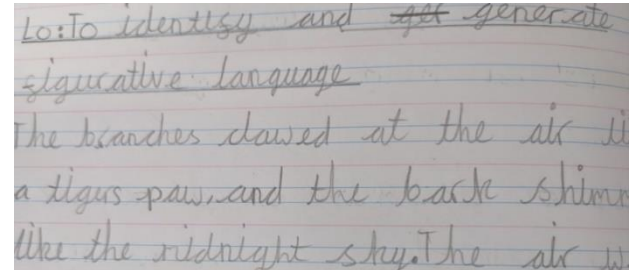 LO: To identify and get generate
figurative language
The branches clawed at the air li
a tigus paw, and the bark shimm
like the midnight sky. The air w